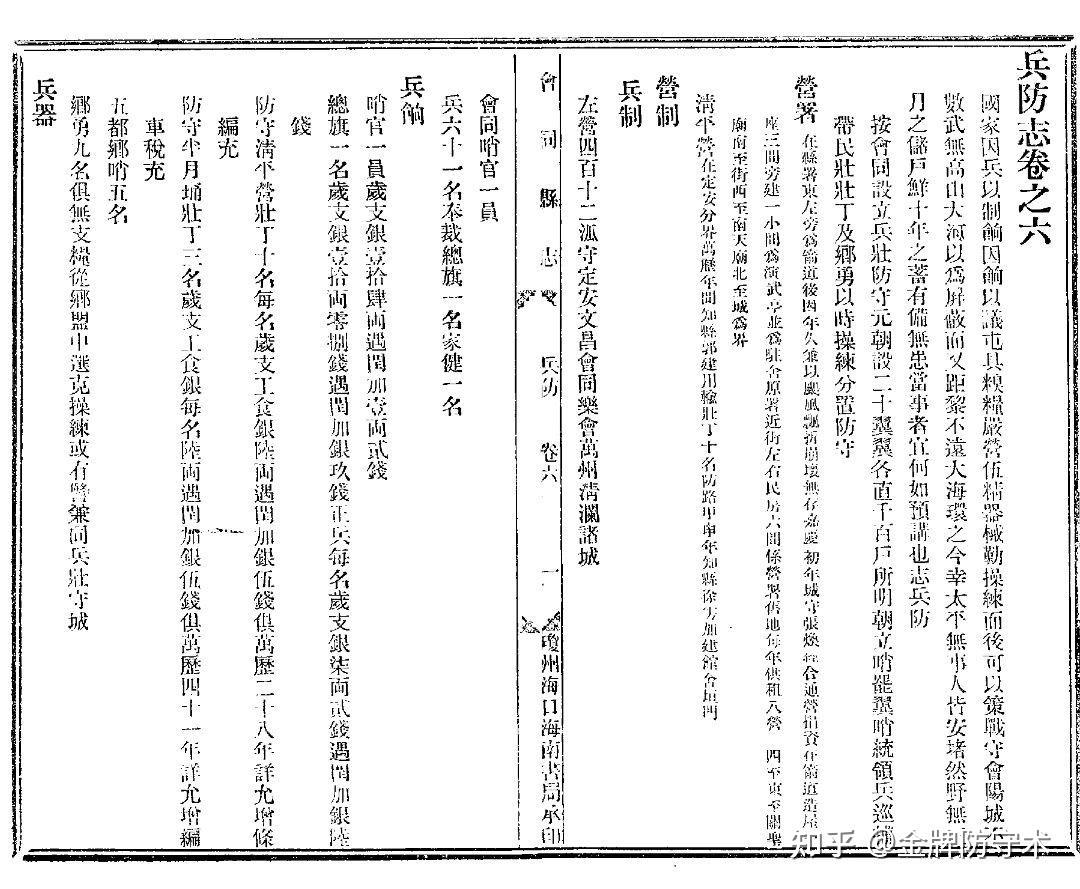 兵防志卷之六
國家因兵以制餉因餉以議屯具糗糧嚴營伍精器械勤操練而後可以策戰守會陽城不
數武無高山大河以爲屏蔽而又距黎不遠大海環之今幸太平無事人皆安堵然野無
月之儲戶鮮十年之蓄有備無患當事者宜何如預講也志兵防
按會同設立兵壯防守元朝設二十翼翼各直千百戶所明朝立哨罷翼哨統領兵巡捕
帶民壯壯丁及鄉勇以時操練分置防守
營署 在縣署東左旁爲箭道後因年久兼以颶風飄折崩壞無存嘉慶初年城守張煥 合通營捐資在箭道造屋
座三間旁建一小間爲演武亭並爲駐舍原署近街左右民房六間係營署舊地每年供租入營 四至東至關聖
廟南至街西至南天廟北至城爲界
清平營在定安分界萬曆年間知縣郭建用輪壯丁十名防路甲申年知縣徐 加建館舍垣門
營制
兵制
左營四百十二 守定安文昌會同樂會萬州清瀾諸城
會同縣志
兵防 卷六
一
瓊州海口海南書局承印
會同哨官一員
兵六十一名奉裁總旗一名家健一名
兵餉
哨官一員歲支銀壹拾肆兩遇閏加壹兩貳錢
總旗一名歲支銀壹拾兩零捌錢遇閏加銀玖錢正兵每名歲支銀柒兩貳錢遇閏加銀陸
錢
防守清平營壯丁十名每名歲支工食銀陸兩遇閏加銀伍錢俱萬歷二十八年詳允增條
編充
防守半月埇壯丁三名歲支工食銀每名陸兩遇閏加銀伍錢俱萬歷四十一年詳允增編
車稅充
五都鄉哨五名
鄉勇九名俱無支糧從鄉盟中選克操練或有警兼同兵壯守城
兵器
知乎 @金牌防守术